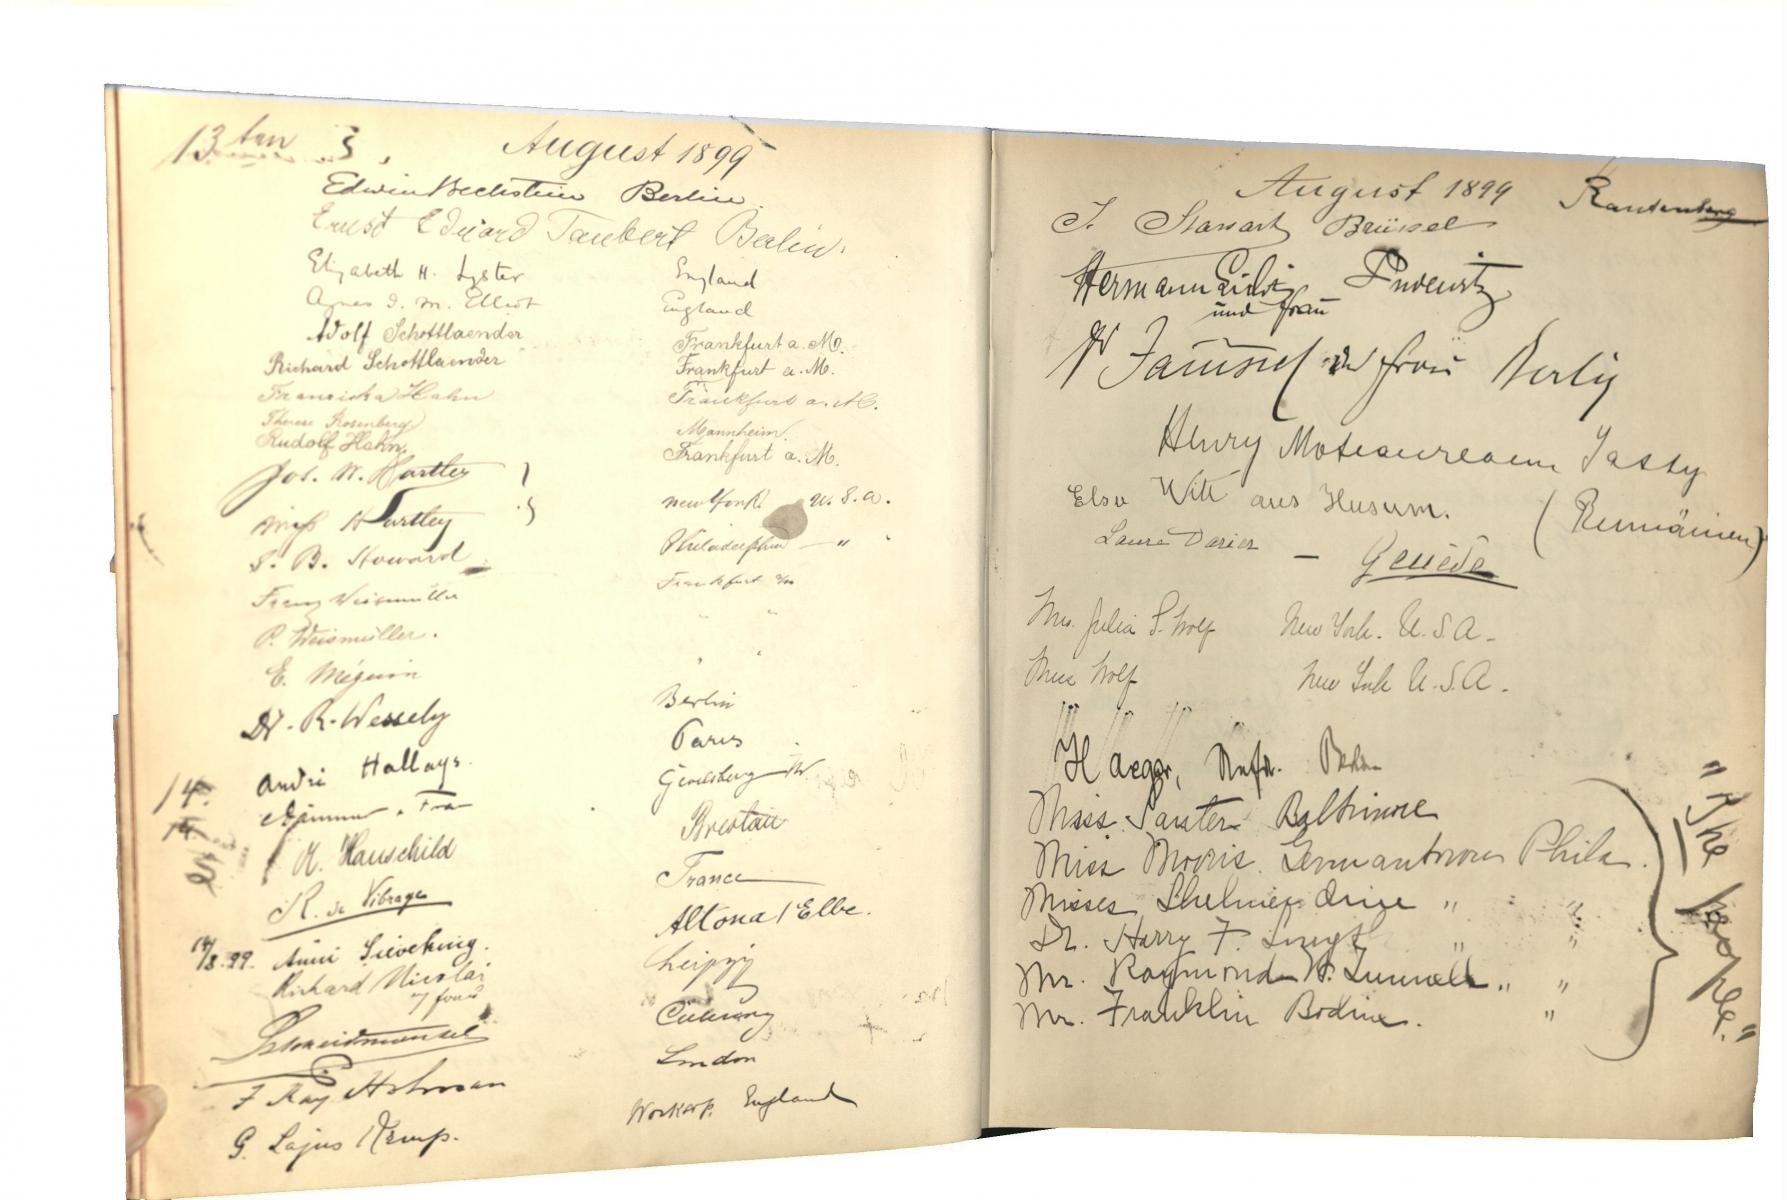 13ten 3. August 1899
Edwin Bechstein Berlin.
Ernst Eduard Taubert Berlin.
Elizabeth H. Lyster England
Agnes J. M. Elliot England
Adolf Schottlaender Frankfurt a. M.
Richard Schottlaender Frankfurt a. M.
Franziska Hahn Frankfurt a. M.
Therese Rosenberg Mannheim
Rudolf Hahn. Frankfurt a. M.
Jos. W. Hartley
Miss Hartley New York U. S. A.
S. B. Howard Philadelphia — "
Franz Weismüller Frankfurt a/m
P. Weismüller. " "
E. Méguin " "
Dr. R. Wessely Berlin
André Hallays. Paris
14.
H. Hauschild Breslau
R. de Vibraye France
14/8.99. Anni Sieveking. Altona / Elbe.
Richard Nicolai Leipzig
Coburg
F Ray Holman London
G. Lajus Kemp. Worksop. England
August 1899
J. Stassart Brüssel
Hermann
und Frau
Dr und Frau Berlin
Henry Jassy
Elsa Witt aus Husum. (Rumänien)
Laure Darier — Genève
Mrs. Julia S. Wolf New York. U. S. A.
Miss Wolf New York U. S. A.
Haeger,
Miss Sauter Baltimore
Miss Morris. Germantown Phila.
Misses " "
Dr. Harry F. " "
Mr. Raymond W. Tunnell " "
Mr. Franklin Bodine. "
"The people."